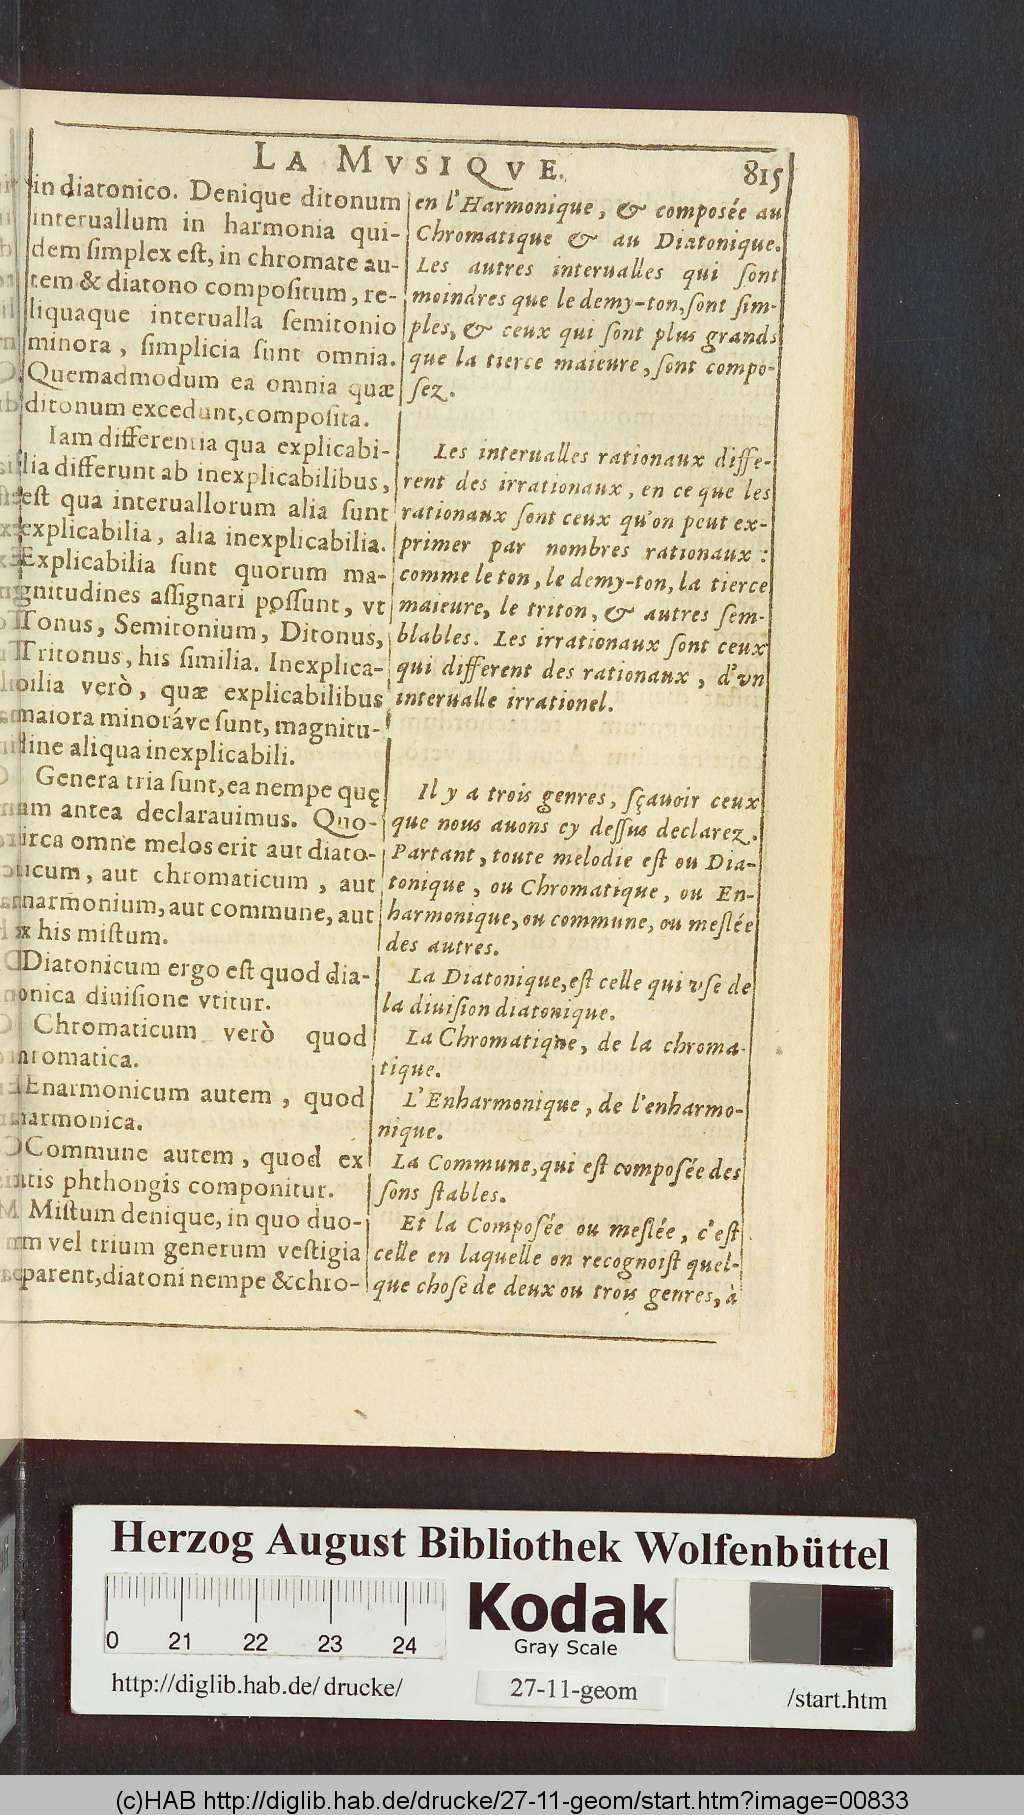 LA MVSIQVE. 815
in diatonico. Denique ditonum
interuallum in harmonia qui-
dem simplex est, in chromate au-
tem & diatono compositum, re-
liquaque interualla semitonio
minora, simplicia sunt omnia.
Quemadmodum ea omnia quæ
ditonum excedunt, composita.
Iam differentia qua explicabi-
lia differunt ab inexplicabilibus,
est qua interuallorum alia sunt
explicabilia, alia inexplicabilia.
Explicabilia sunt quorum ma-
gnitudines assignari possunt, vt
Tonus, Semitonium, Ditonus,
Tritonus, his similia. Inexplica-
bilia verò, quæ explicabilibus
maiora minoráve sunt, magnitu-
dine aliqua inexplicabili.
Genera tria sunt, ea nempe quę
antea declarauimus. Quo-
circa omne melos erit aut diato-
nicum, aut chromaticum, aut
enarmonium, aut commune, aut
ex his mistum.
Diatonicum ergo est quod dia-
tonica diuisione vtitur.
Chromaticum verò quod
chromatica.
Enarmonicum autem, quod
enarmonica.
Commune autem, quod ex
phthongis componitur.
Mistum denique, in quo duo-
rum vel trium generum vestigia
apparent, diatoni nempe & chro-
en l'Harmonique, & composée au
Chromatique & au Diatonique.
Les autres interualles qui sont
moindres que le demy-ton, sont sim-
ples, & ceux qui sont plus grands
que la tierce maieure, sont compo-
sez.
Les interualles rationaux diffe-
rent des irrationaux, en ce que les
rationaux sont ceux qu'on peut ex-
primer par nombres rationaux:
comme le ton, le demy-ton, la tierce
maieure, le triton, & autres sem-
blables. Les irrationaux sont ceux
qui different des rationaux, d'vn
interualle irrationel.
Il y a trois genres, sçauoir ceux
que nous auons cy dessus declarez.
Partant, toute melodie est ou Dia-
tonique, ou Chromatique, ou En-
harmonique, ou commune, ou meslée
des autres.
La Diatonique, est celle qui vse de
la diuision diatonique.
La Chromatique, de la chroma-
tique.
L'Enharmonique, de l'enharmo-
nique.
La Commune, qui est composée des
sons stables.
Et la Composée ou meslée, c'est
celle en laquelle on recognoist quel-
que chose de deux ou trois genres, à
Herzog August Bibliothek Wolfenbüttel
0 21 22 23 24
Kodak
Gray Scale
http://diglib.hab.de/ drucke/ 27-11-geom /start.htm
(c)HAB http://diglib.hab.de/drucke/27-11-geom/start.htm?image=00833